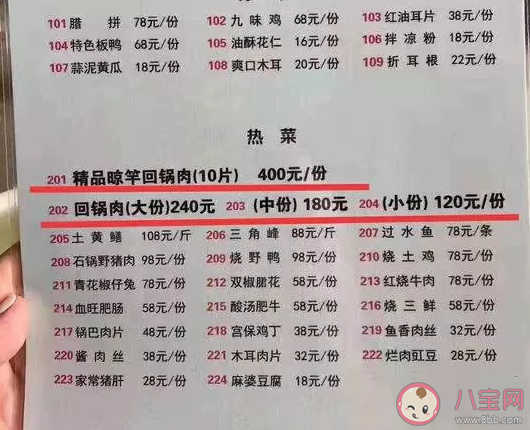 101 腊 拼 78元/份 102 九 味 鸡 68元/份 103 红油耳片 38元/份
104 特色板鸭 68元/份 105 油酥花仁 16元/份 106 拌 凉 粉 18元/份
107 蒜泥黄瓜 18元/份 108 爽口木耳 20元/份 109 折 耳 根 22元/份
热 菜
201 精品晾竿回锅肉(10片) 400元/份
202 回锅肉(大份)240元 203 (中份) 180元 204 (小份) 120元/份
205 土 黄 鳝 108元/斤 206 三 角 峰 88元/斤 207 过 水 鱼 78元/条
208 石锅野猪肉 98元/份 209 烧 野 鸭 98元/份 210 烧 土 鸡 78元/份
211 青花椒仔兔 78元/份 212 双椒腰花 58元/份 213 红烧牛肉 78元/份
214 血旺肥肠 58元/份 215 酸汤肥牛 58元/份 216 烧 三 鲜 58元/份
217 锅巴肉片 48元/份 218 宫保鸡丁 38元/份 219 鱼香肉丝 32元/份
220 酱 肉 丝 38元/份 221 木耳肉片 32元/份 222 烂肉豇豆 28元/份
223 家常猪肝 28元/份 224 麻婆豆腐 18元/份
八宝网
www.8bb.com